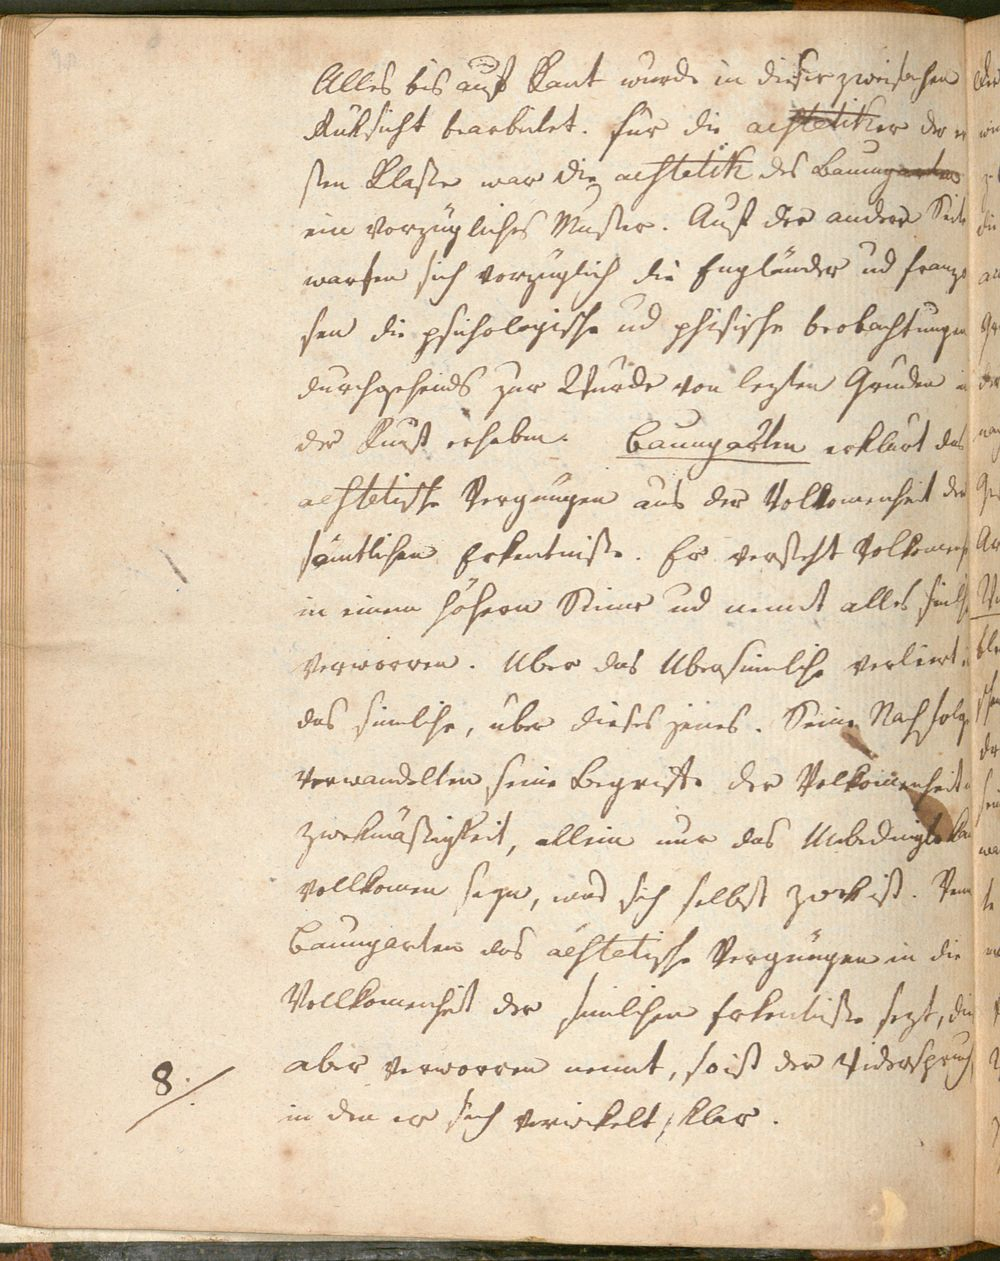 Alles bis auf Kant wurde in dieser zweifachen
Rüksicht bearbeitet. für die aesthetiker der er
sten Klasse war die aesthetik des Baumgarten
ein vorzügliches Muster. Auf der andern Seite
warfen sich vorzüglich die Engländer ud franzo
sen die psichologische ud phisische beobachtungen
durchgehends zur Würde von lezten Gründen in
der Kunst erhoben. Baumgarten erklärt das
aesthetische Vergnügen aus der Vollkomenheit der
sinnlichen Erkentnisse. Er versteht Vollkomenh
in einem höhern Sinne ud nennt alles sinlich
verworren. Über das Übersinnliche verliert
das sinnliche, über dieses jenes. Seine Nachfolge
verwandelten seine Begriffe der Vollkomenheit
zwekmäßigkeit, allein nur das Unbedingte ka
vollkomen seyn, was sich selbst zwek ist. Wenn
Baumgarten das aesthetische Vergnügen in die
Vollkomenheit der sinlichen Erkentnisse sezt, die
aber verworren nennt, so ist der Widerspruch,
8. in den er sich verwikelt, klar.